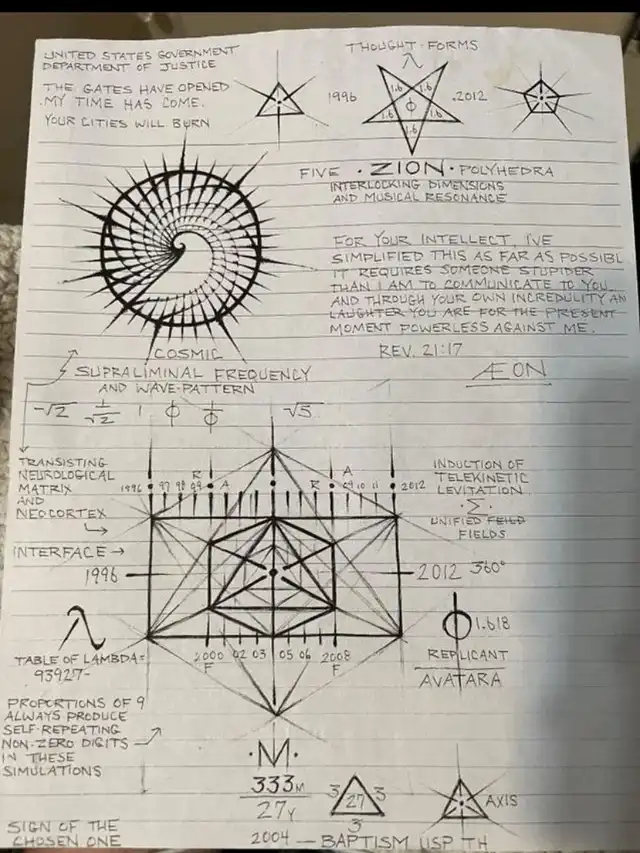 UNITED STATES GOVERNMENT
DEPARTMENT OF JUSTICE
THE GATES HAVE OPENED
MY TIME HAS COME.
YOUR CITIES WILL BURN
THOUGHT-FORMS
λ
1996
1.6 1.6
ϕ
1.6 1.6
1.6
.2012
FIVE · ZION · POLYHEDRA
INTERLOCKING DIMENSIONS
AND MUSICAL RESONANCE
FOR YOUR INTELLECT, I'VE
SIMPLIFIED THIS AS FAR AS POSSIBL
IT REQUIRES SOMEONE STUPIDER
THAN I AM TO COMMUNICATE TO YOU
AND THROUGH YOUR OWN INCREDULITY AN
LAUGHTER YOU ARE FOR THE PRESENT
MOMENT POWERLESS AGAINST ME.
REV. 21:17
ÆON
COSMIC
SUPRALIMINAL FREQUENCY
AND WAVE-PATTERN
√2 1/√2 1 ϕ 1/ϕ √5
TRANSISTING
NEUROLOGICAL
MATRIX
AND
NEOCORTEX
INTERFACE →
1996
R A
R A
1996 97 98 99 09 10 11 2012
INDUCTION OF
TELEKINETIC
LEVITATION
·Σ·
UNIFIED FEILD
FIELDS
2012 360°
λ
TABLE OF LAMBDA=
93927-
2000 02 03 05 06 2008
F F
ϕ 1.618
REPLICANT
AVATARA
PROPORTIONS OF 9
ALWAYS PRODUCE
SELF-REPEATING
NON-ZERO DIGITS
IN THESE
SIMULATIONS
·M·
333M
27Y
3 27 3
3
AXIS
SIGN OF THE
CHOSEN ONE
2004 — BAPTISM USP TH